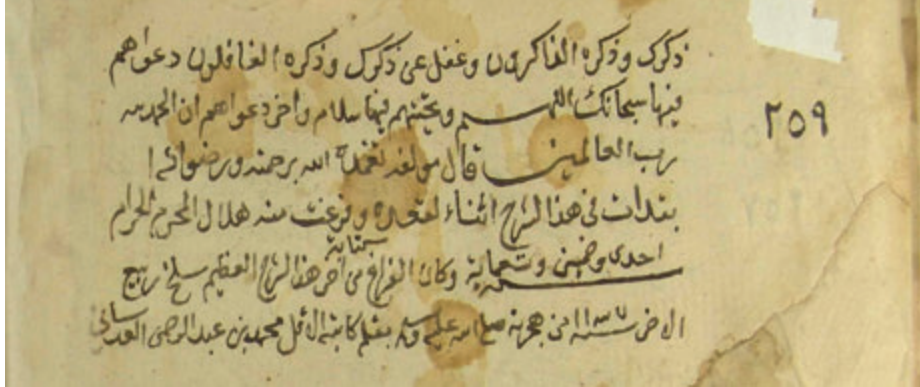 ذكرك وذكره الذاكرون وغفل عن ذكرك وذكره الغافلون دعواهم
فيها سبحانك اللهم وتحيتهم فيها سلام واخر دعواهم ان الحمد لله
رب العالمين قال مولفه تغمده الله برحمته ورضوانه
ابتدات في هذا الشرح اثناء لقعده وفرغت منه هلال المحرم الحرام
احدى وخمسين وتسعماية
ستماية
وكان الفراغ من اخر هذا الشرح العظيم سلخ ربيع
الاخر سنة من هجرته صلى الله عليه وسلم بقلم كاتبه الاقل محمد بن عبد الرحمن
٢٥٩